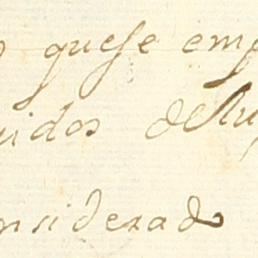 quese emp
uidos delu
nsiderado